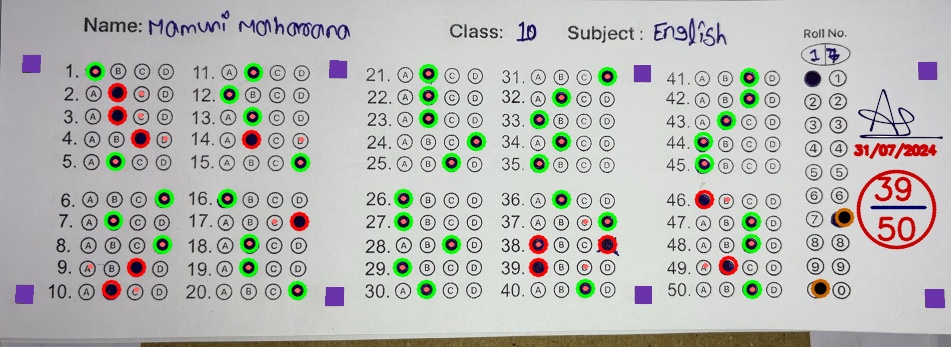 Name: Mamuni Moharana Class: 10 Subject: English
Roll No.
17
1. B C D
2. A C D
3. A C D
4. A B D
5. A C D
6. A B C
7. A C D
8. A B C
9. A B D
10. A C D
11. A C D
12. B C D
13. A C D
14. A C D
15. A B C
16. B C D
17. A B C
18. A C D
19. A C D
20. A B C
21. A C D
22. A C D
23. A C D
24. A B C
25. A B D
26. B C D
27. B C D
28. A B D
29. B C D
30. A C D
31. A B C
32. A C D
33. B C D
34. A C D
35. B C D
36. A C D
37. A B C
38. B C
39. B C D
40. A B D
41. A B D
42. A B D
43. A C D
44. B C D
45. B C D
46. B C D
47. A B D
48. A B D
49. A C D
50. A B D
1
2 2
3 3
4 4
5 5
6 6
7
8 8
9 9
0
31/07/2024
39
50